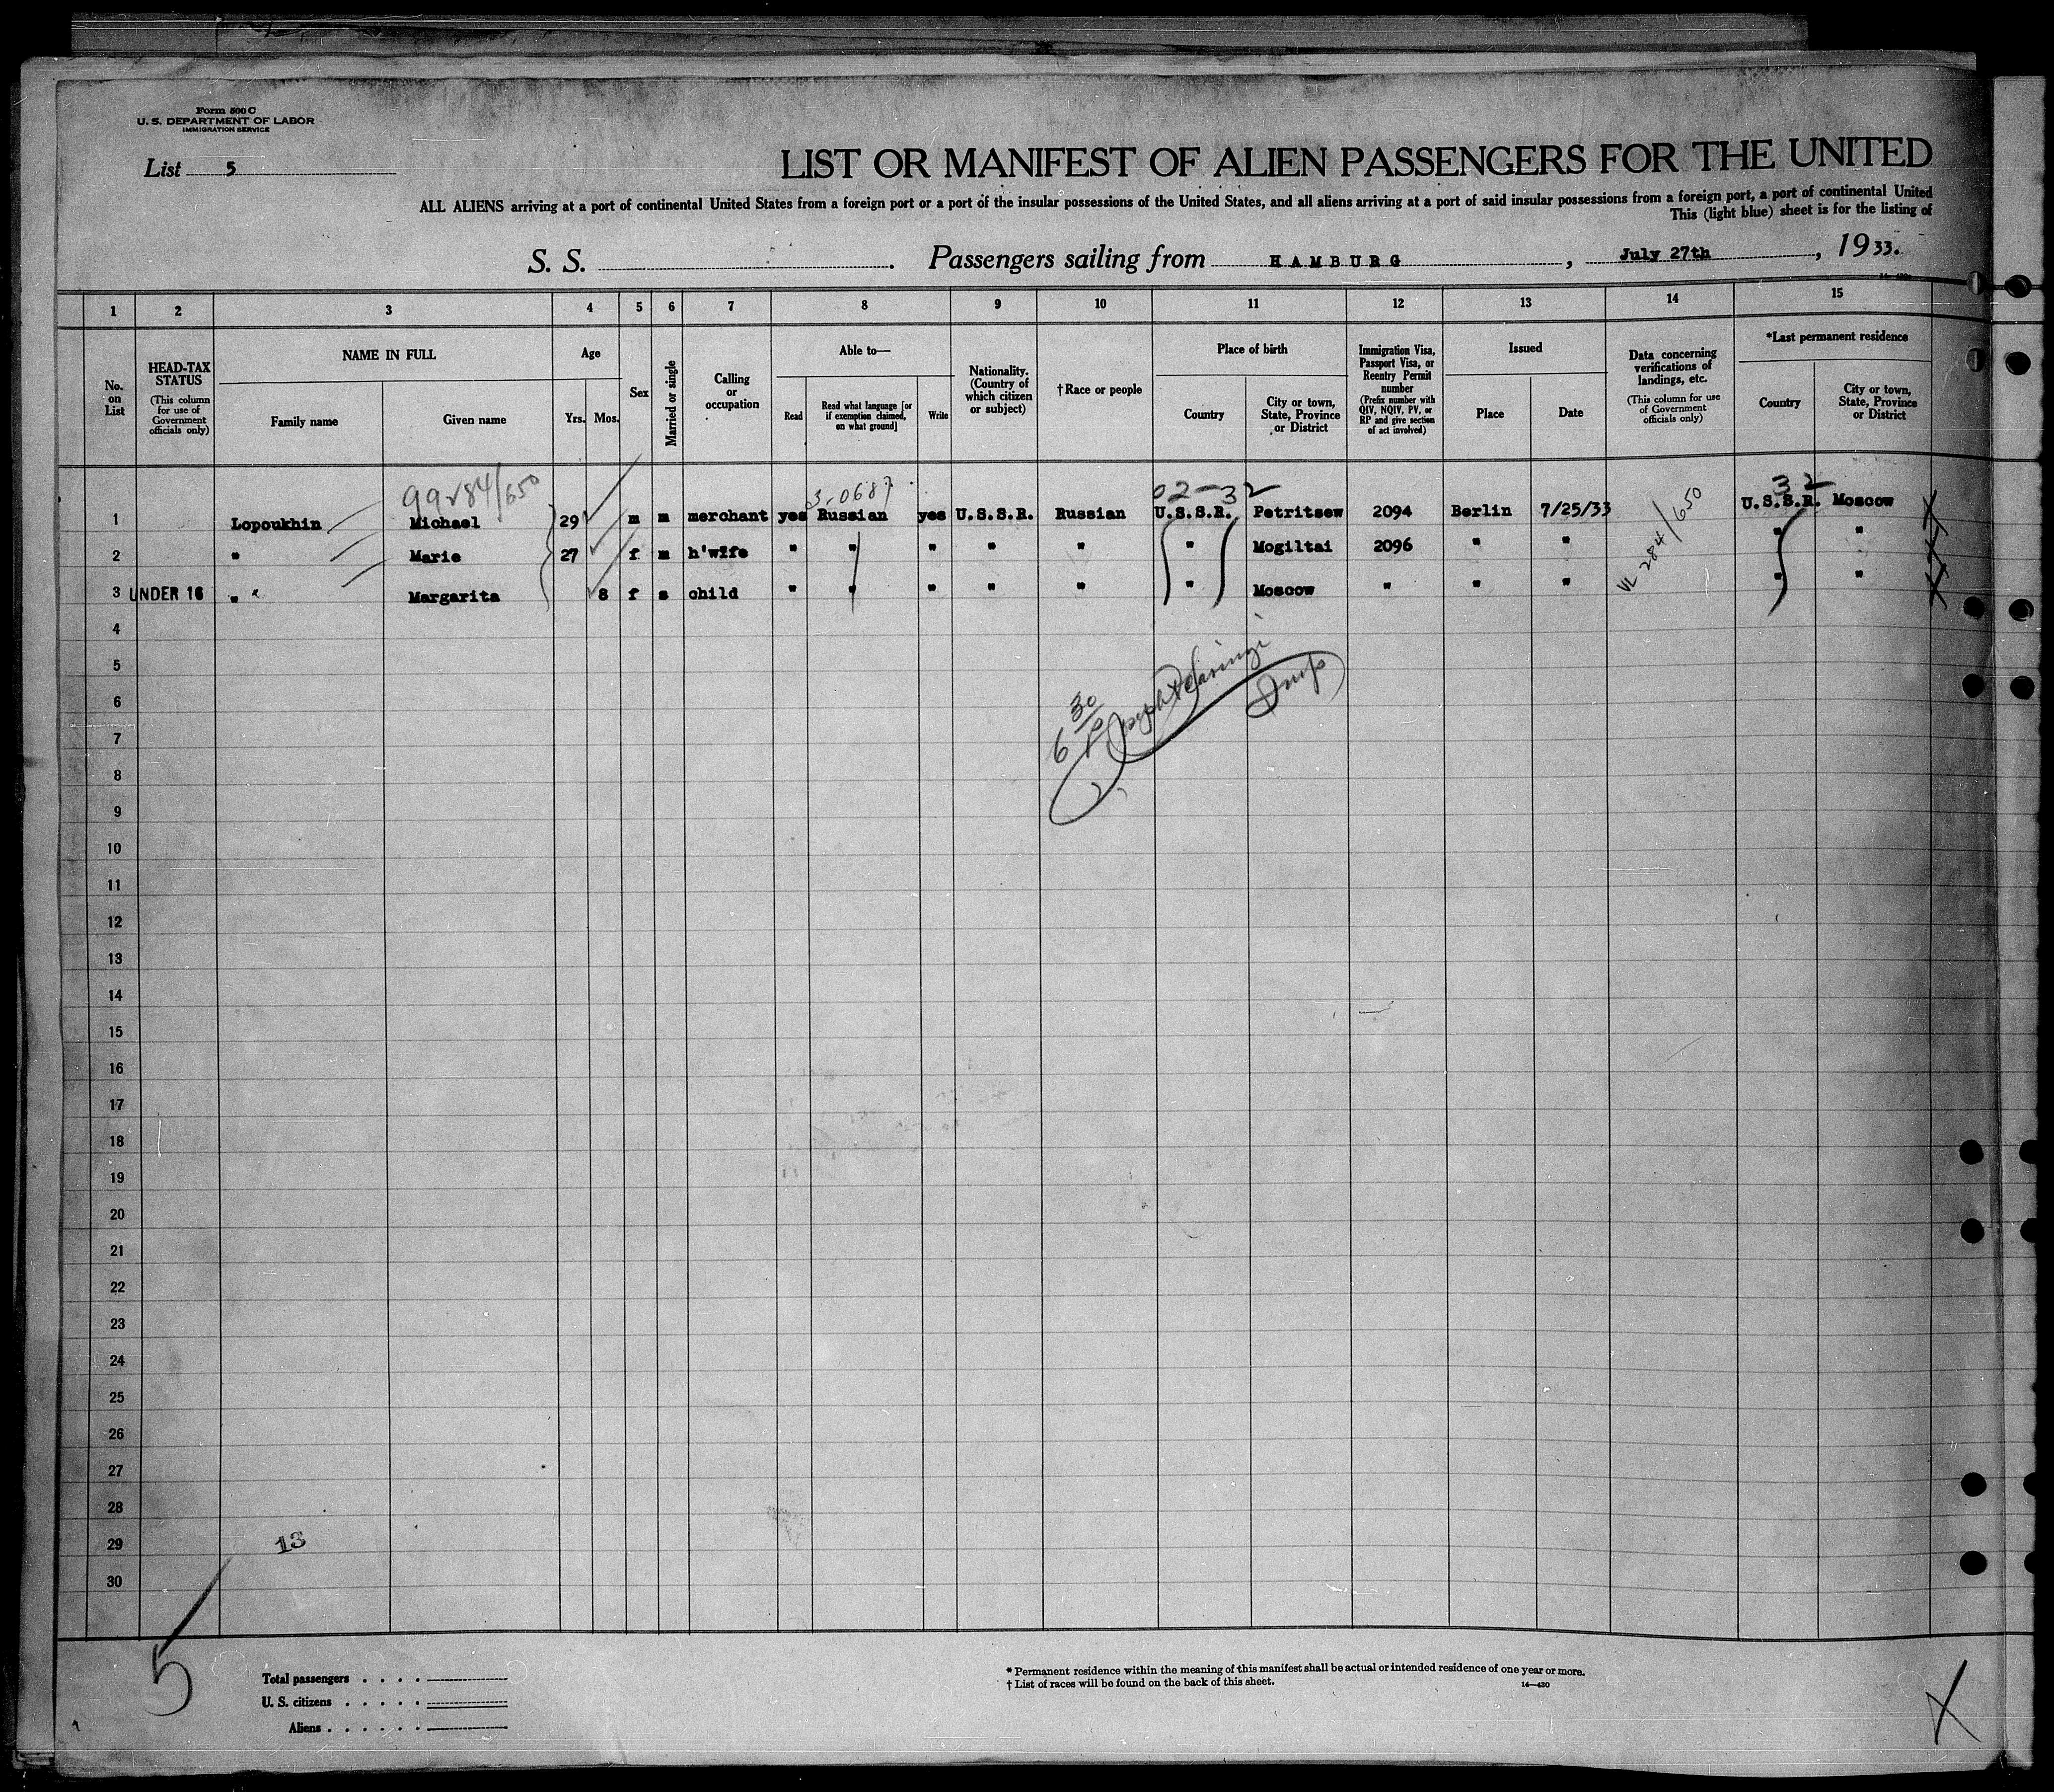 Form 500 C
U. S. DEPARTMENT OF LABOR
IMMIGRATION SERVICE
List 5
LIST OR MANIFEST OF ALIEN PASSENGERS FOR THE UNITED
ALL ALIENS arriving at a port of continental United States from a foreign port or a port of the insular possessions of the United States, and all aliens arriving at a port of said insular possessions from a foreign port, a port of continental United
This (light blue) sheet is for the listing of
S. S. . Passengers sailing from HAMBURG , July 27th , 1933.
1 2 3 4 5 6 7 8 9 10 11 12 13 14 15
No. on List
HEAD-TAX STATUS (This column for use of Government officials only)
NAME IN FULL
Family name Given name
Age
Yrs. Mos.
Sex
Married or single
Calling or occupation
Able to—
Read Read what language [or if exemption claimed, on what ground] Write
Nationality. (Country of which citizen or subject)
† Race or people
Place of birth
Country City or town, State, Province or District
Immigration Visa, Passport Visa, or Reentry Permit number (Prefix number with QIV, NQIV, PV, or RP and give section of act involved)
Issued
Place Date
Data concerning verifications of landings, etc. (This column for use of Government officials only)
*Last permanent residence
Country City or town, State, Province or District
99284/650 3-0687 02-32 32
1 Lopoukhin Michael 29 m m merchant yes Russian yes U.S.S.R. Russian U.S.S.R. Petritsew 2094 Berlin 7/25/33 U.S.S.R. Moscow
2 " Marie 27 f m h'wife " " " " " " Mogiltai 2096 " " " "
3 UNDER 16 " " Margarita 8 f s child " " " " " " Moscow " " " " "
VL 284/650
4
5
6
6 30
7
8
9
10
11
12
13
14
15
16
17
18
19
20
21
22
23
24
25
26
27
28
29
13
30
5
Total passengers . . . .
U. S. citizens . . . . .
Aliens . . . . . .
* Permanent residence within the meaning of this manifest shall be actual or intended residence of one year or more.
† List of races will be found on the back of this sheet.
14—430